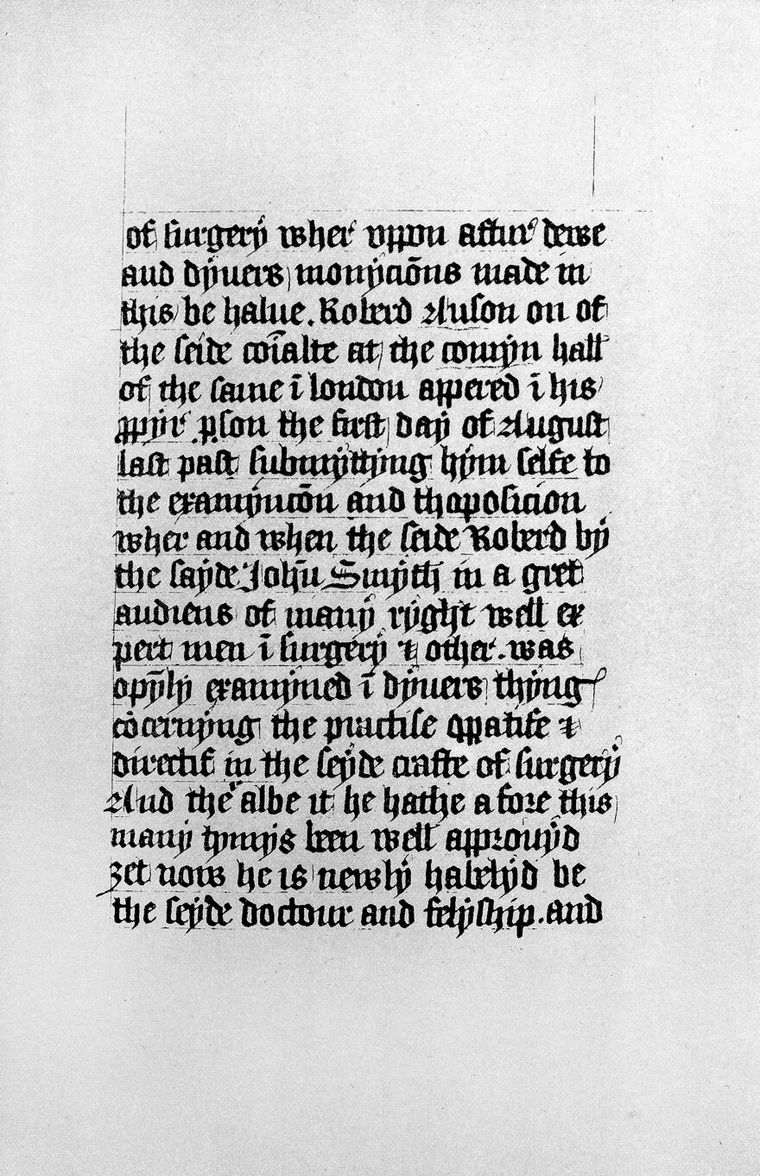 of surgery wher uppon aftur dewe
and dyuers monyciōns made in
this be halue. Roberd Anson on of
the seide coīalte at the comyn hall
of the same ī london appered ī his
ꝓpyr ꝑson the first day of August
last past submyttyng hym selfe to
the examynciōn and thaposicion
wher and when the seide Roberd by
the sayde Johñ Smyth in a gret
audiens of many ryght well ex
pert men ī surgery & other. was
opynly examyned ī dyuers thyng
cōcernyng the practise oppatife &
directif in the seyde crafte of surgery
And the albe it he hathe a fore this
many tymys been well approuyd
ȝet now he is newly habelyd be
the seyde doctour and felyship. and